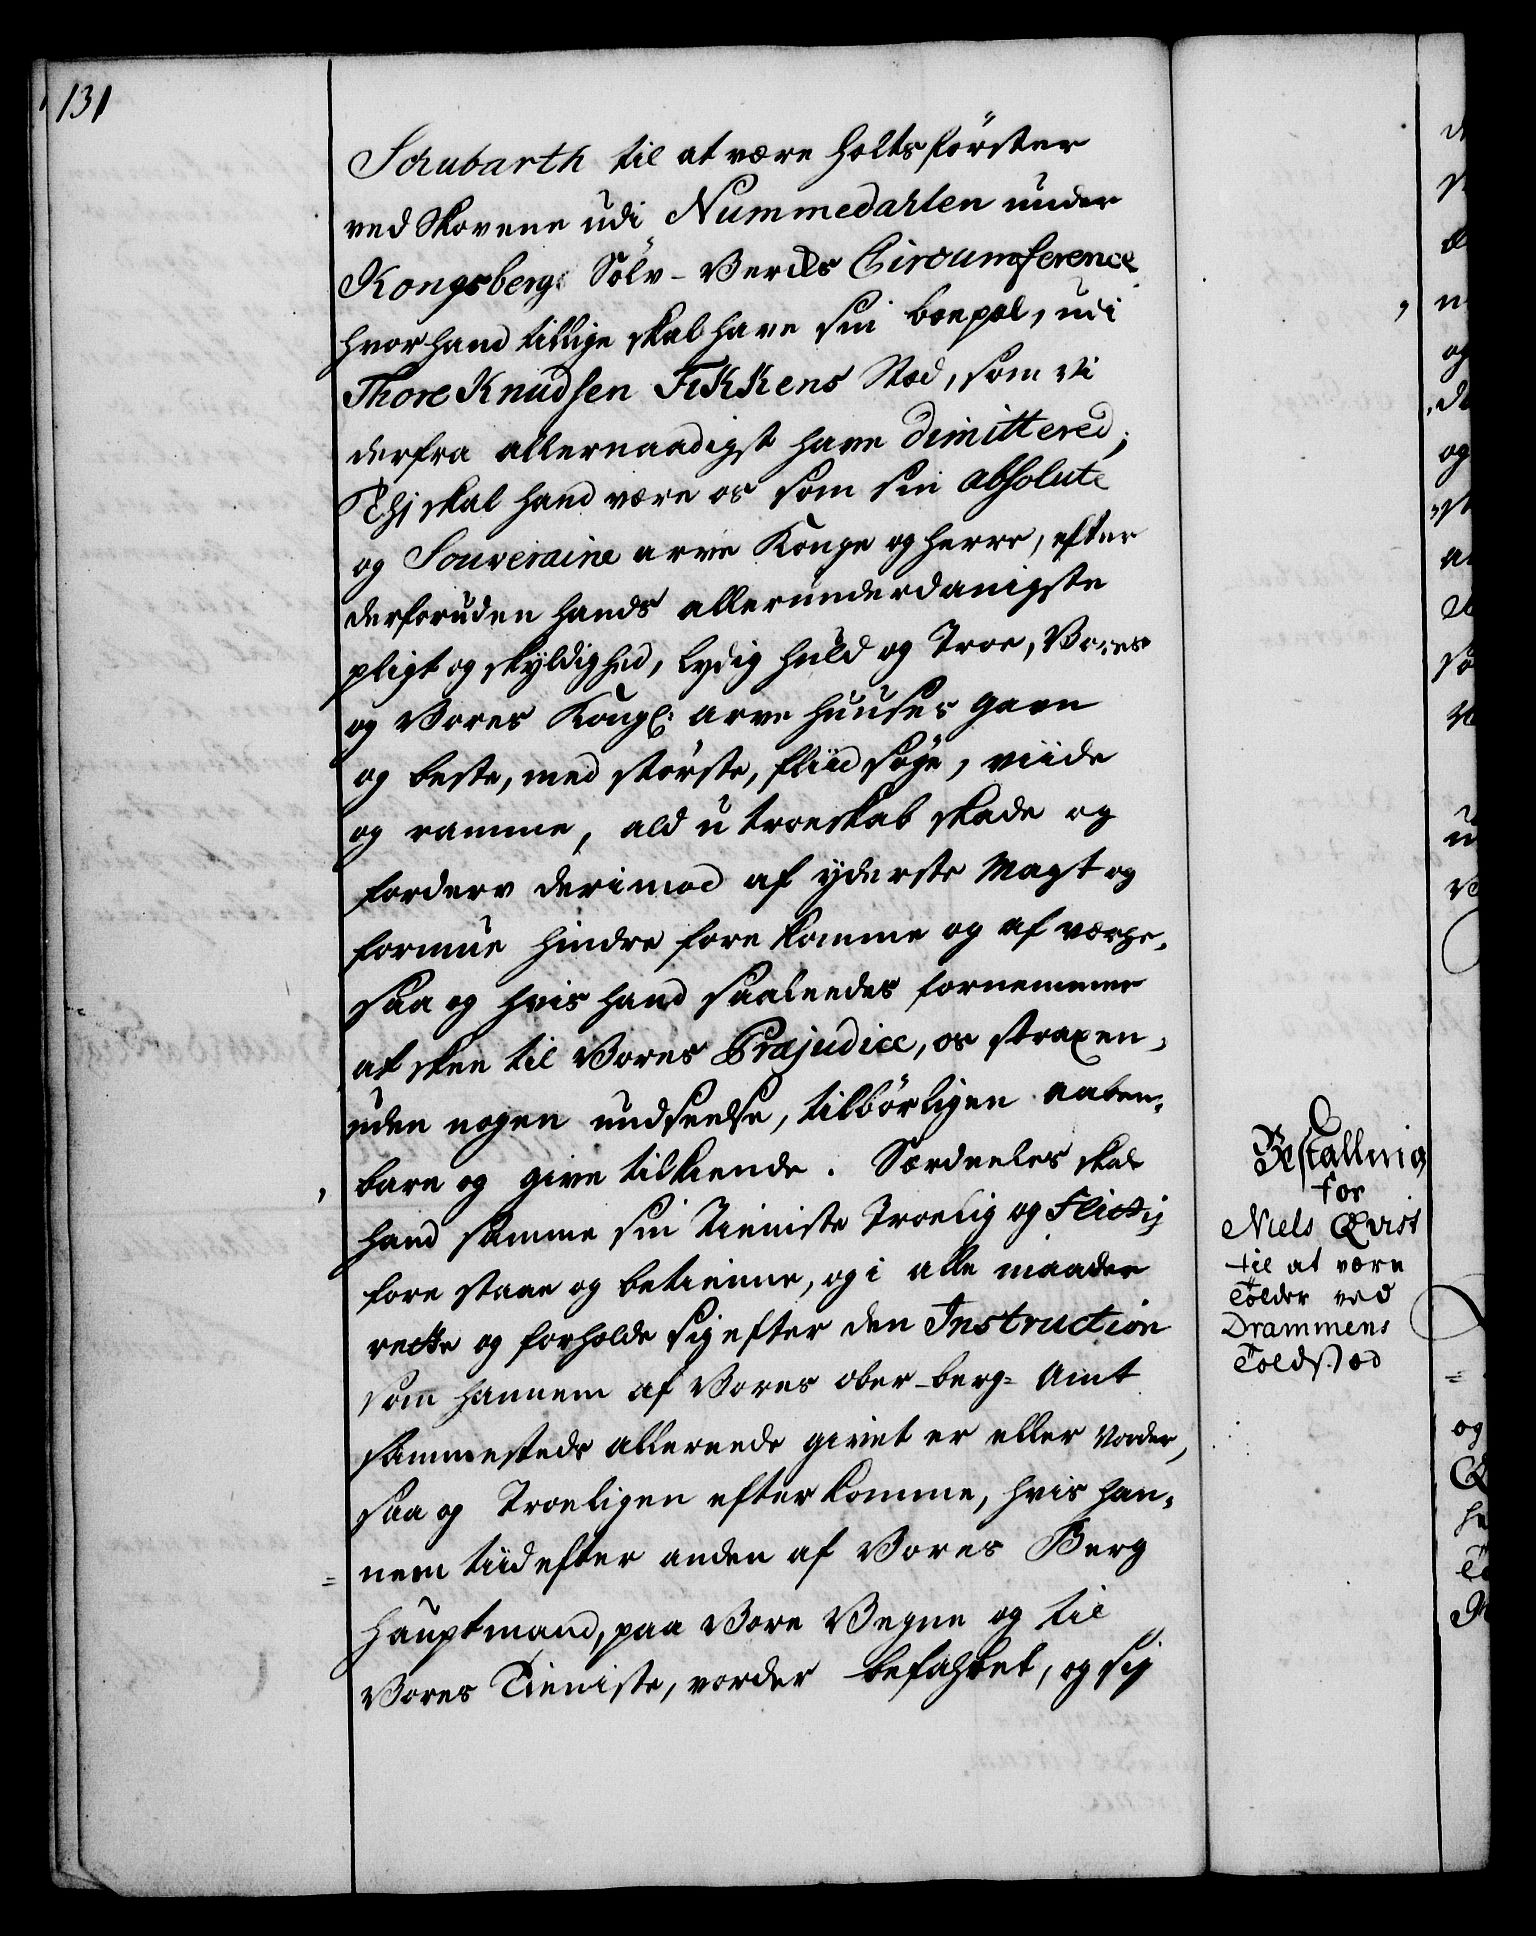 131
Schubarth til at være Holtsförster
ved Skovene udi Nummedahlen under
Kongsbergs Sölv-Vercks Circumference
hvor hand tillige skal have sin boepæl, udi
Thore Knudsen Fekkens Sted, som Vi
derfra allernaadigst have dimittered;
Thj skal hand være os som sin absolute
og Souveraine arve Konge og Herre, efter
derforuden hands allerunderdanigste
pligt og skyldighed, lydig huld og Troe, Vores
og Vores Kongl: arve Huuses gavn
og beste, med störste, fliid söge, viide
og ramme, ald utroeskab skade og
forderv derimod af yderste Magt og
formue hindre fore komme og af værge,
saa og hvis hand saaleedes fornemmer
at skee til Vores Præjudice, os straxen,
uden nogen undseelse, tilbörligen aaben,
bare og give tilkiende. Særdeeles skal
hand samme sin Tieniste Troelig og Flittig
fore staae og betienne, og i alle maader
rette og forholde sig efter den Instruction
som hannem af Vores ober-berg-Amt
sammesteds allereede givet er eller vorder,
saa og Troeligen efterkomme, hvis han,
nem tiid efter anden af Vores Berg
Hauptmand, paa Vore Vegne og til
Vores Tieniste, vorder befahlet, og sig
Bestalling
for
Niels Qvist
til at være
Tolder ved
Drammens
Toldsted